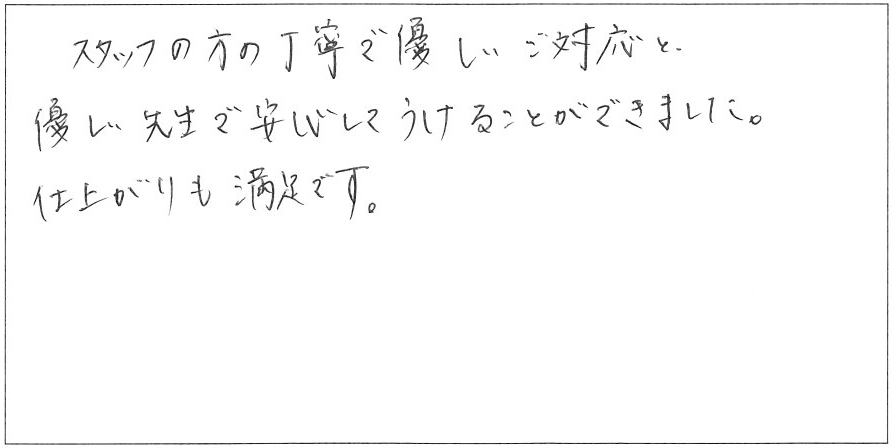 スタッフの方の丁寧で優しいご対応と、
優しい先生で安心してうけることができました。
仕上がりも満足です。